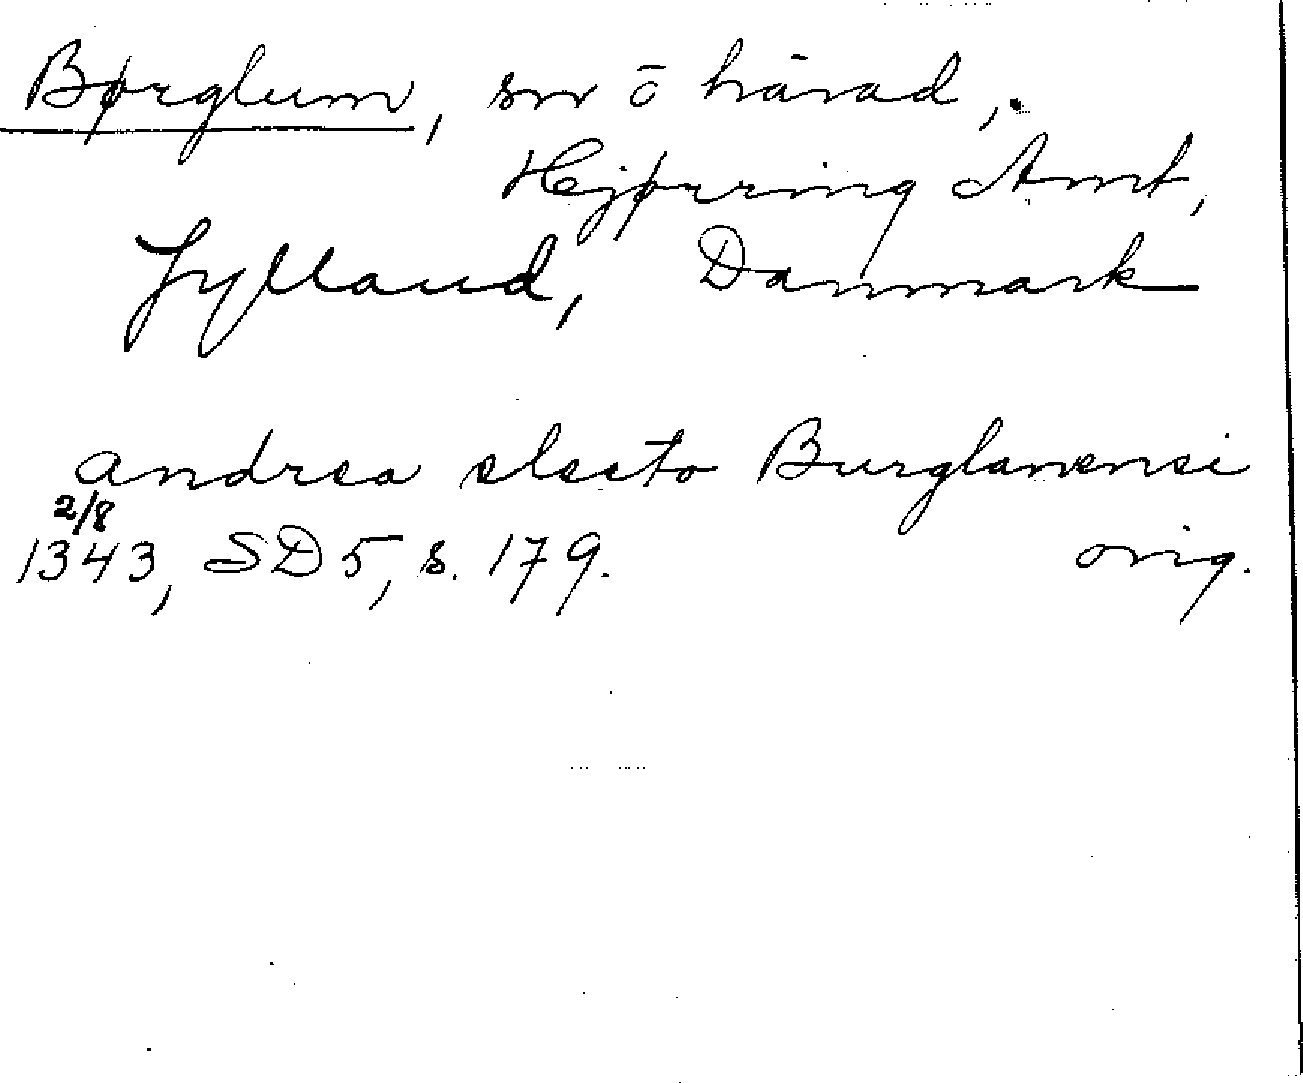 Børglum, sn o härad,
Hjørring Amt,
Jylland, Danmark
andrea electo Burglanensi
2/8
1343, SD 5, s. 179. orig.